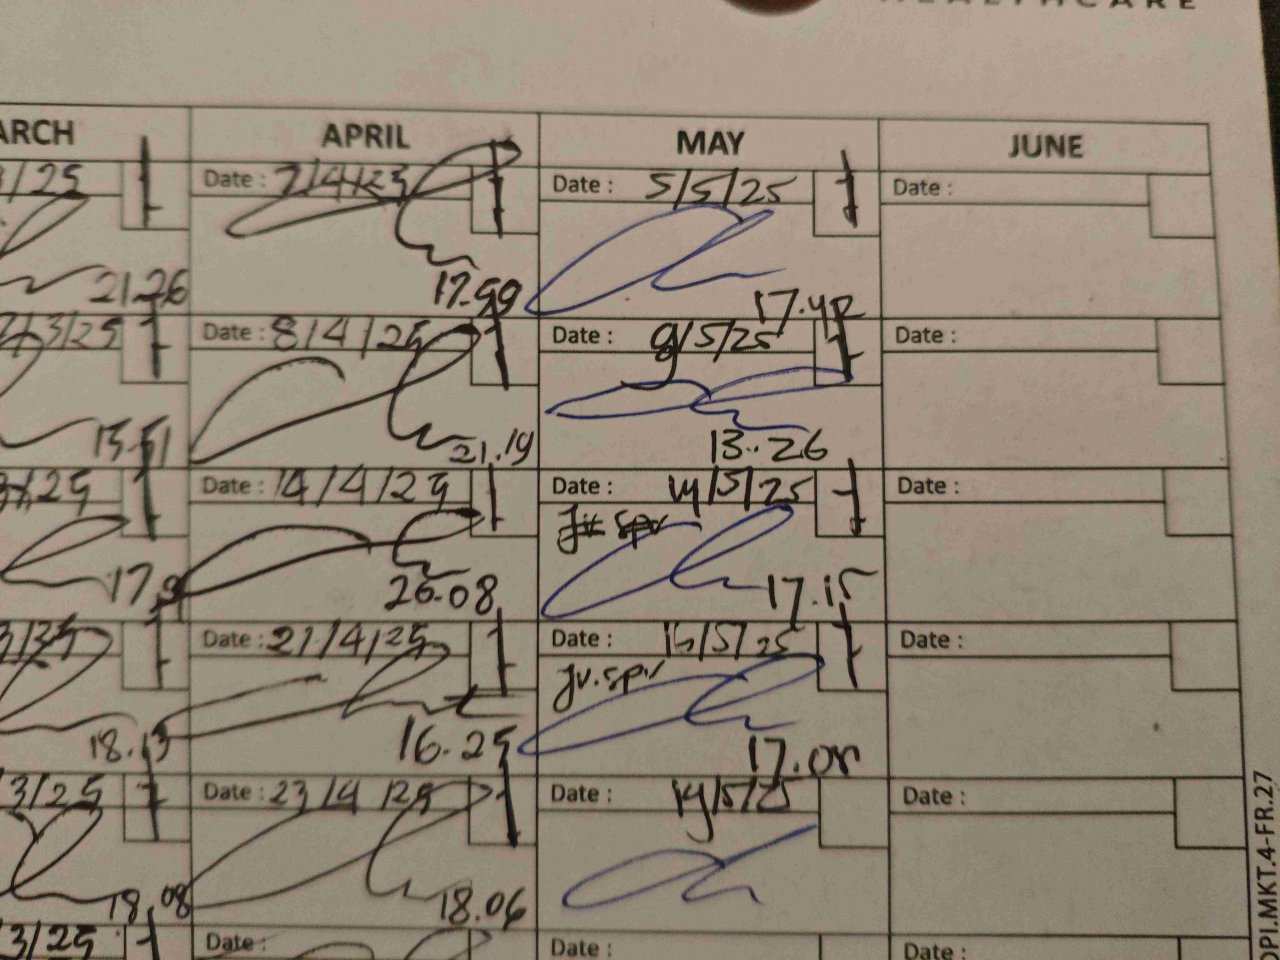 HEALTHCARE
ARCH
/25
21.26
/3/25
13.51
/25
3/25
18.13
3/25
18.08
3/25
APRIL
Date : 7/4/25
17.59
Date : 8/4/25
21.19
Date : 14/4/25
20.08
Date : 21/4/25
16.25
Date : 23/4/25
18.06
Date :
MAY
Date : 5/5/25
17.42
Date : 9/5/25
13.26
Date : 14/5/25
Jv spv
17.15
Date : 16/5/25
Jv.spv
17.08
Date : 19/5/25
Date :
JUNE
Date :
Date :
Date :
Date :
Date :
Date :
DPI.MKT.4-FR.27